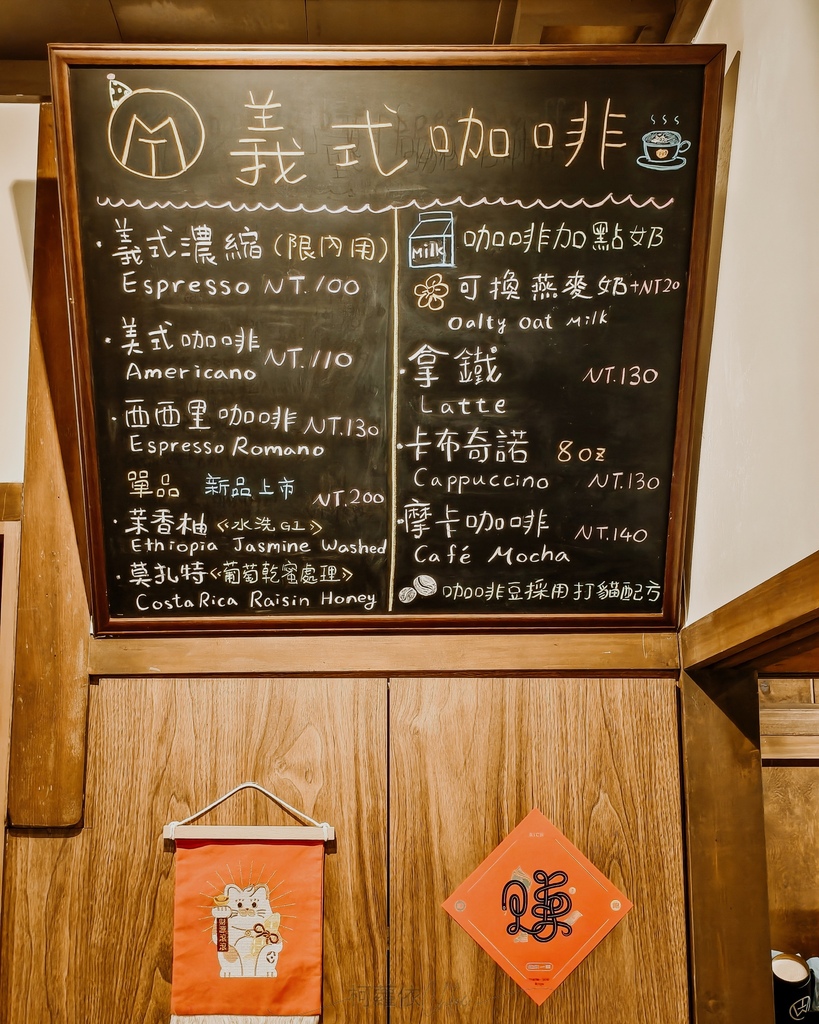 義式咖啡
・義式濃縮(限內用)
Espresso NT.100
・美式咖啡
Americano NT.110
・西西里咖啡 NT.130
Espresso Romano
單品 新品上市 NT.200
・茉香柚《水洗G1》
Ethiopia Jasmine Washed
・莫扎特《葡萄乾蜜處理》
Costa Rica Raisin Honey
Milk 咖啡加點奶
可換燕麥奶+NT20
Oalty Oat Milk
・拿鐵 NT.130
Latte
・卡布奇諾 8oz
Cappuccino NT.130
・摩卡咖啡 NT.140
Café Mocha
咖啡豆採用打貓配方
賺